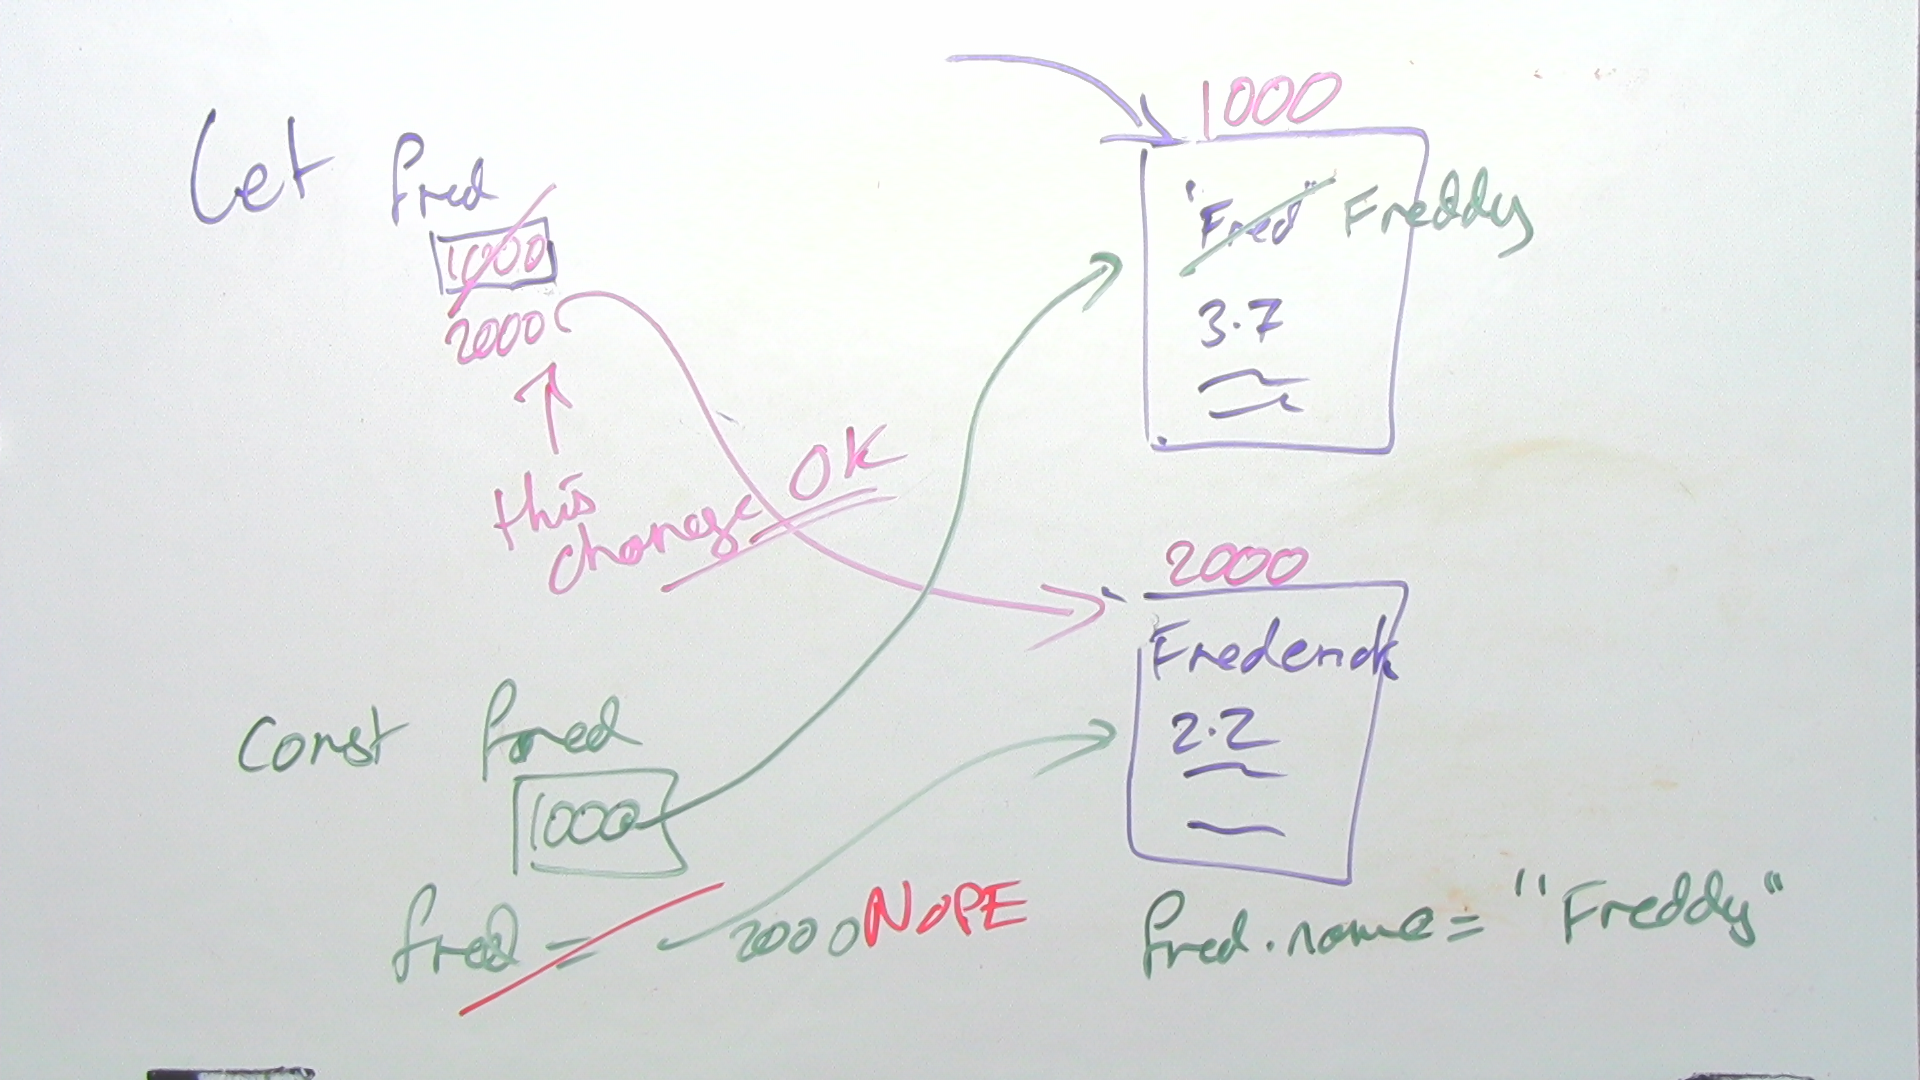 Let fred
1000
2000
this
change OK
1000
"Fred" Freddy
3.7
2000
Frederick
2.2
const fred
1000
fred = 2000 NOPE
fred.name = "Freddy"